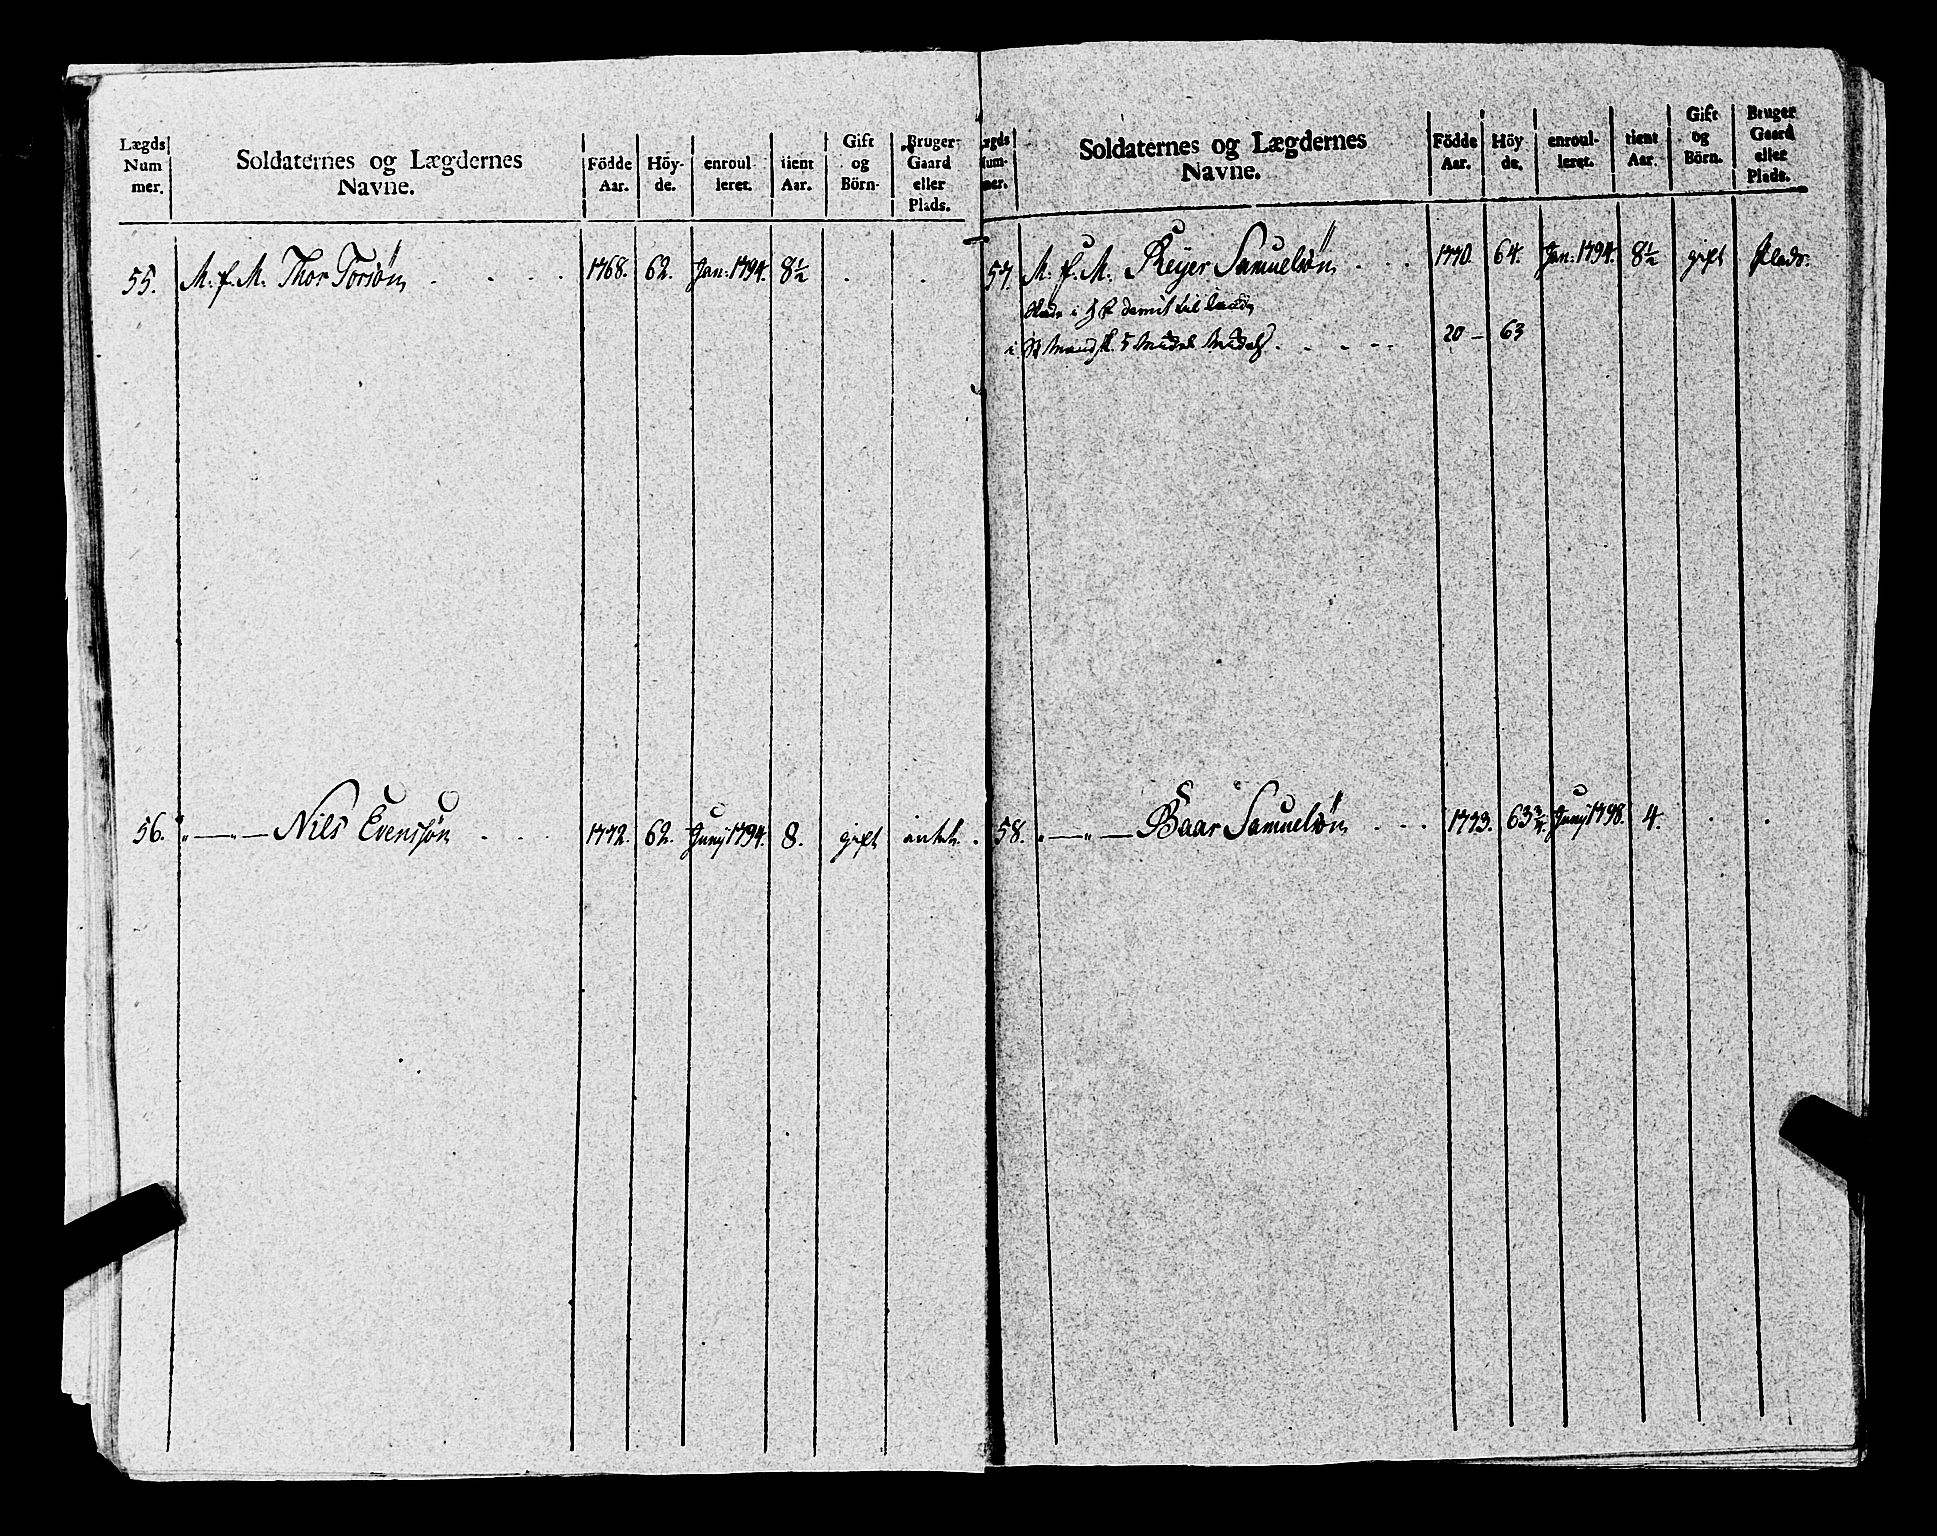 Lægds Num mer.
Soldaternes og Lægdernes Navne.
Födde Aar.
Höy- de.
enroul- leret.
tient Aar.
Gift og Börn.
Bruger- Gaard eller Plads.
55. M. f. M. Thor Torsön . . . . 1768. 62. Jan: 1794. 8½ . .
56. „—„— Nils Evensøn . . . 1772. 62. Junj 1794. 8. gift
ægds Num- mer.
Soldaternes og Lægdernes Navne.
Födde Aar.
Höy de.
enroul- leret.
tient Aar.
Gift og Börn.
Bruger Gaard eller Plads.
57. M. f. M. Reyer Samuelsön . . . 1770. 64. Jan: 1794. 8½ gift Plads.
i
20 — 63
58. „—„— Baar Samuelsön . . . 1773. 63¾ Junj 1798. 4. . .